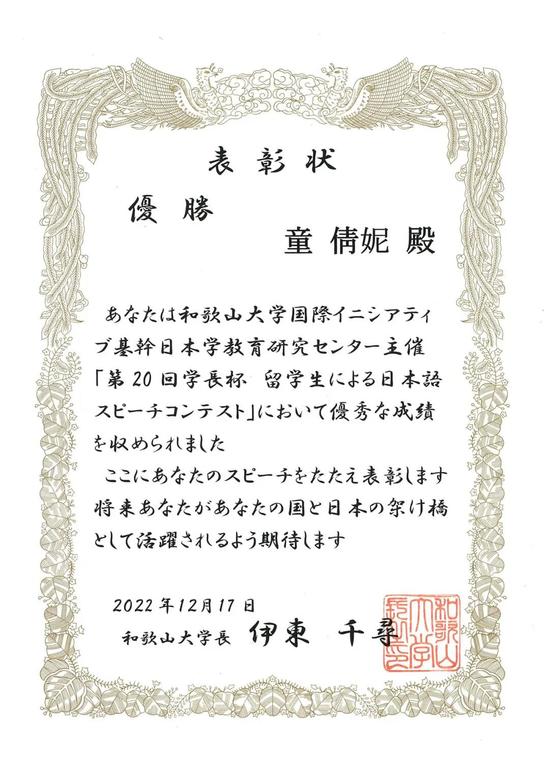 表彰状
優勝
童 倩妮 殿
あなたは和歌山大学国際イニシアティ
ブ基幹日本学教育研究センター主催
「第20回学長杯 留学生による日本語
スピーチコンテスト」において優秀な成績
を収められました
ここにあなたのスピーチをたたえ表彰します
将来あなたがあなたの国と日本の架け橋
として活躍されるよう期待します
2022年12月17日
和歌山大学長 伊東 千尋
和歌山
大学
長之印